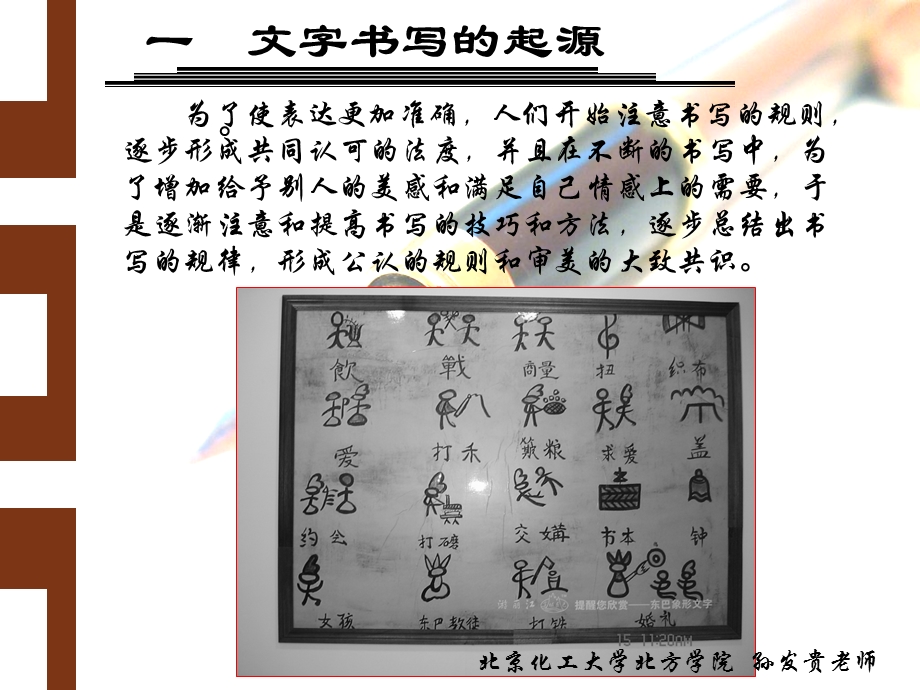 一 文字书写的起源
为了使表达更加准确，人们开始注意书写的规则，
逐步形成共同认可的法度，并且在不断的书写中，为
了增加给予别人的美感和满足自己情感上的需要，于
是逐渐注意和提高书写的技巧和方法，逐步总结出书
写的规律，形成公认的规则和审美的大致共识。
。
飲 戰 商量 扭 织布
爱 打禾 筑粮 求爱 盖
约会 打磅 交媾 书本 钟
女孩 东巴教徒 打铁 婚礼
提醒您欣赏——东巴象形文字
15 11:20AM
北京化工大学北方学院 孙发贵老师